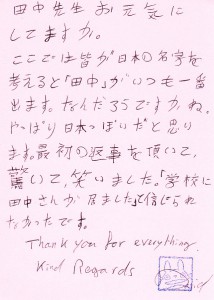 田中先生 お元気に
してますか。
ここでは皆が日本の名字を
考えると「田中」がいつも一番
出ます。なんだろうですか、ね。
やっぱり日本っぽいだと思り
ます。最初の返事を頂いて、
驚いて、笑いました。「学校に
田中さんが居ました」て信じられ
なかったです。
Thank you for everything.
Kind Regards